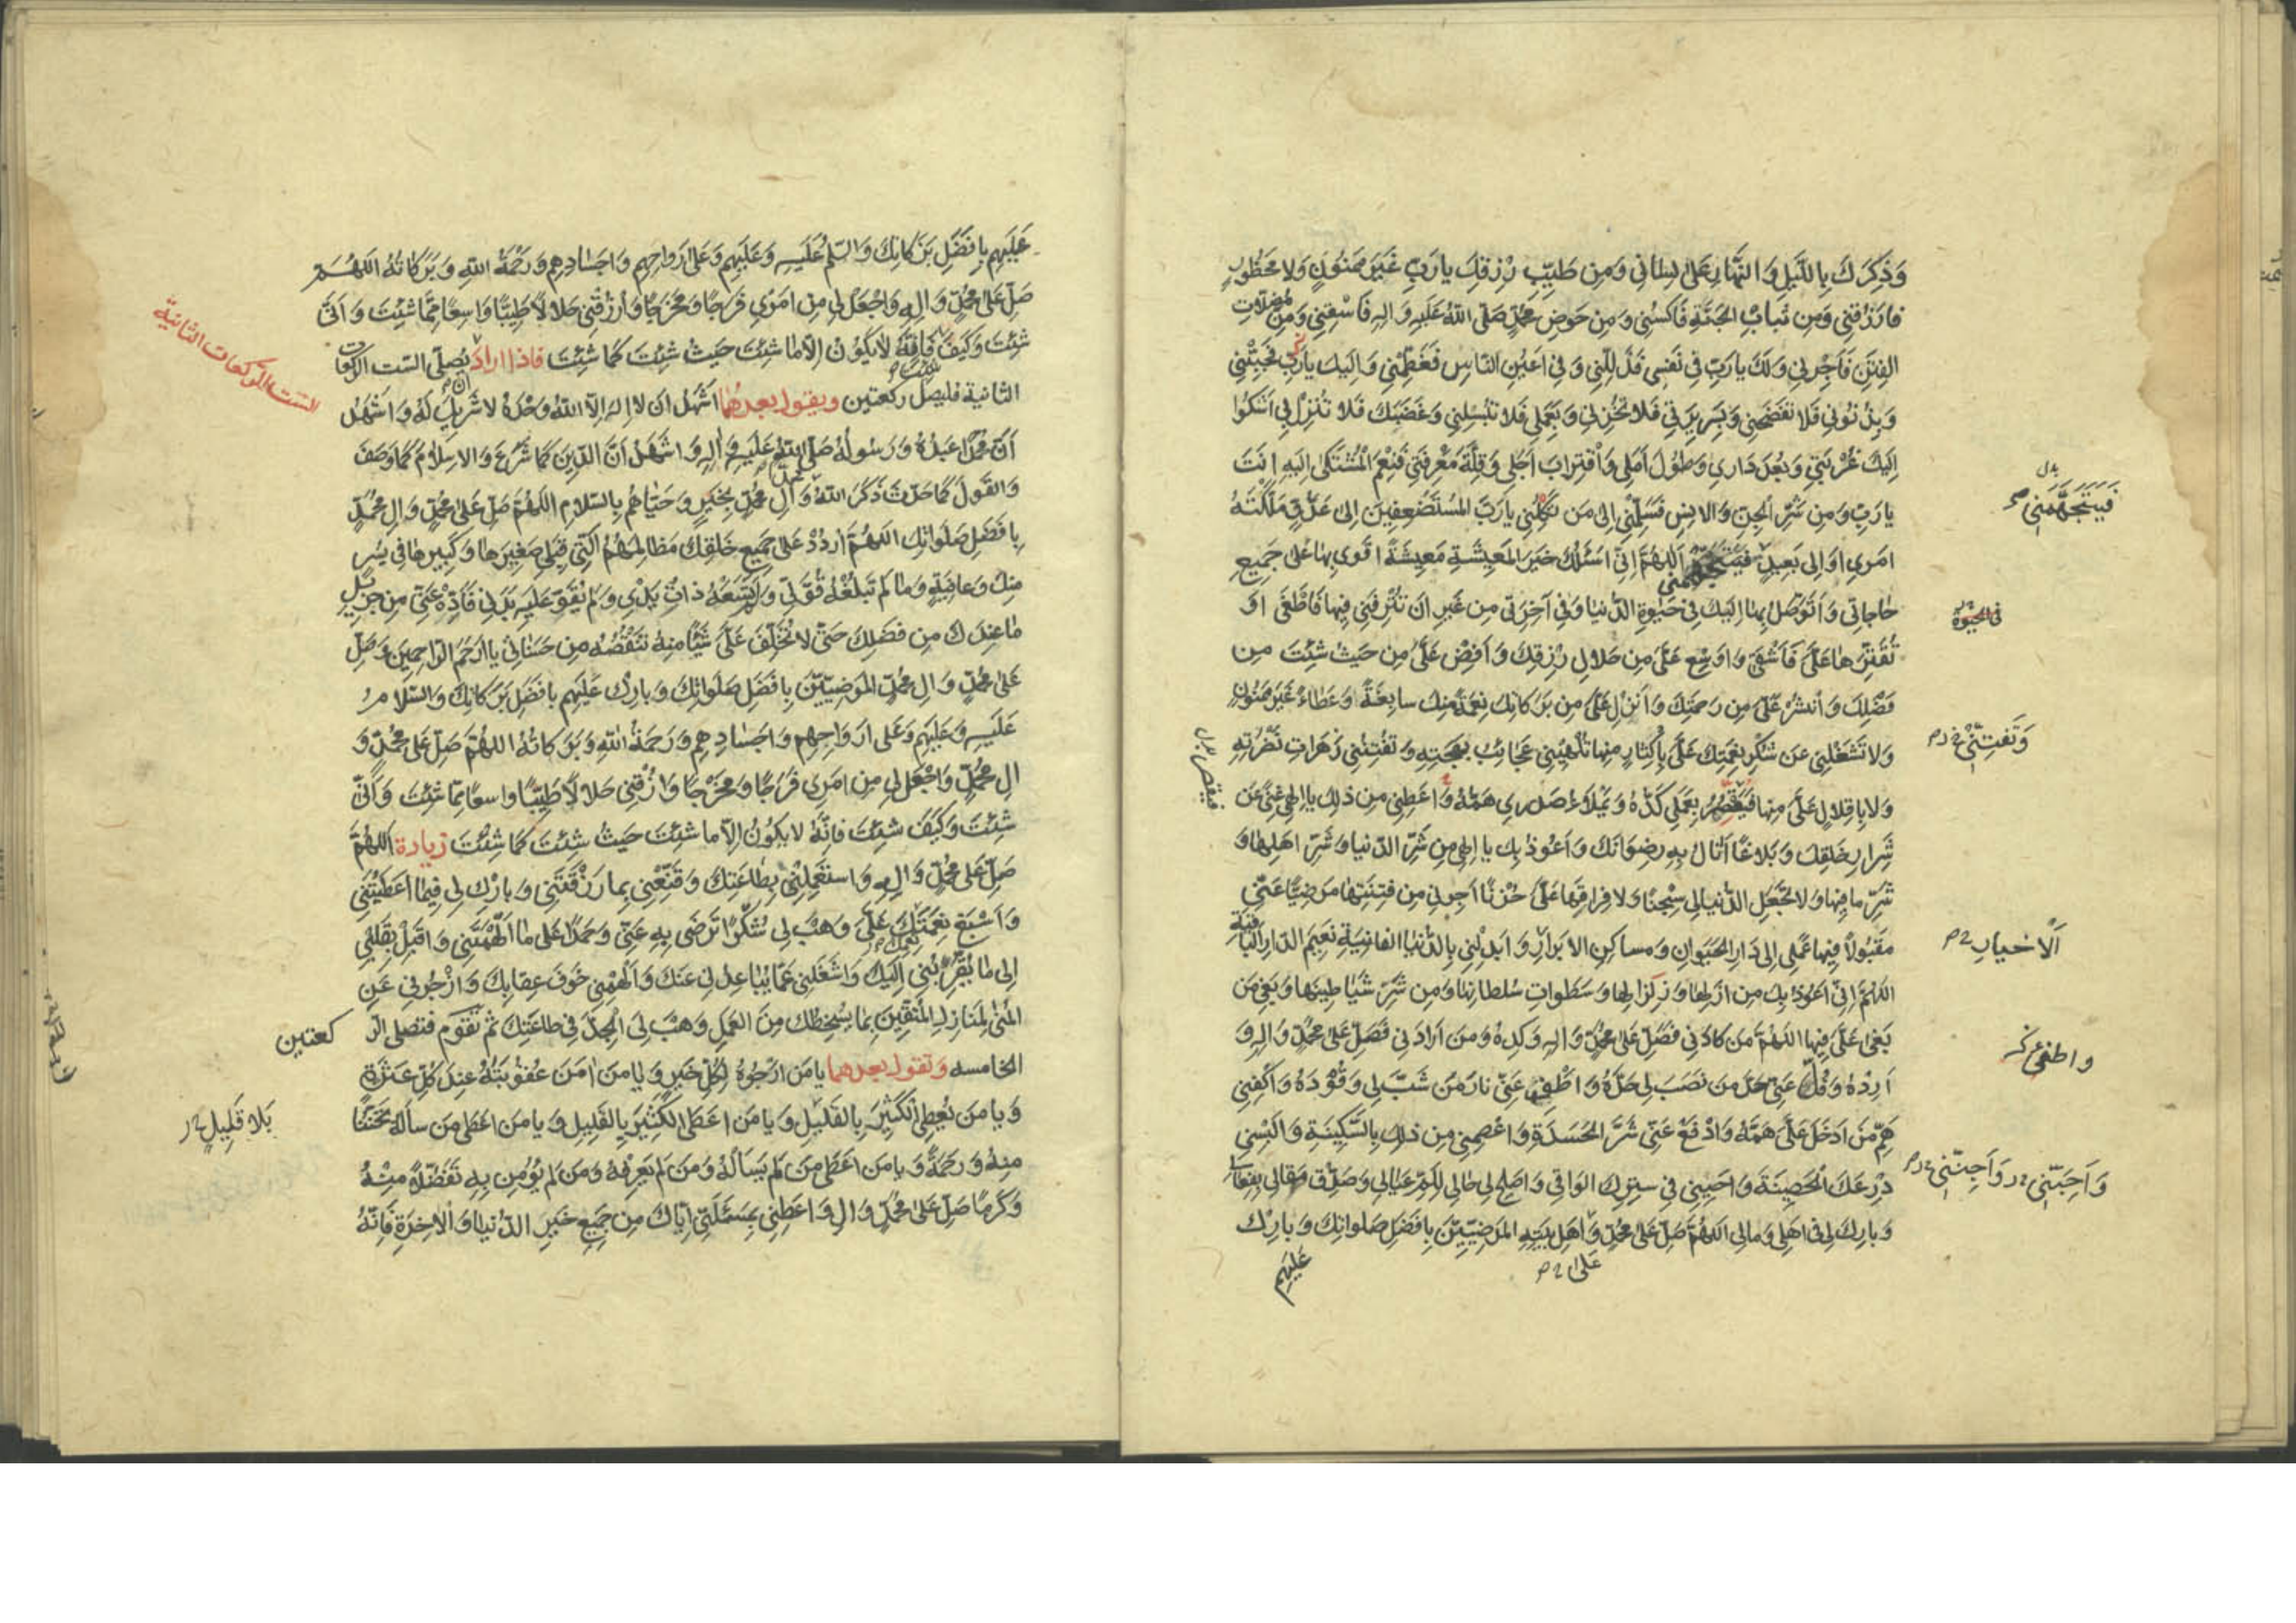 وَذِكرَكَ بِاللَّيلِ وَالنَّهارِ عَلىٰ لِسٰاني وَمِن طَيِّبِ رِزقِكَ يارَبِّ غَيرَ مَمنُونٍ وَلا مَحظُورٍ
فارزُقني وَمِن ثيابِ الجَنَّةِ فَاكسُني وَمِن حَوضِ مُحَمَّدٍ صَلَّى اللهُ عَلَيهِ وَالِهِ فَاسْقِني وَمِن مُضِلّاتِ
الفِتَنِ فَاَجِرني وَلَكَ يارَبِّ في نَفسي فَذَلِّلني وَفي اَعيُنِ النّاسِ فَعَظِّمني وَاِلَيكَ يارَبِّ فَحَبِّبْني
وَبِذُنُوبي فَلا تَفضَحني وَبِسَريرَتي فَلا تُخزِني وَبِعَمَلي فَلا تُبسِلني وَغَضَبَكَ فَلا تُنزِل بي اَشكُوا
اِلَيكَ غُربَتي وَبُعدَ داري وَطُولَ اَمَلي وَاقْتِرابَ اَجَلي وَقِلَّةَ مَعرِفَتي فَنِعمَ المُشتَكىٰ اِلَيهِ اَنتَ
يارَبِّ وَمِن شَرِّ الجِنِّ وَالاِنسِ فَسَلِّمني اِلىٰ مَن تَكِلُني يارَبَّ المُستَضعَفينَ اِلىٰ عَدُوٍّ مَلَّكتَهُ
بدل
فَيَتَجَهَّمَني
اَمري اَو اِلىٰ بَعيدٍ فَيَتَجَهَّمني اَللّهُمَّ اِنّي اَسئَلُكَ خَيرَ المَعيشَةِ مَعيشَةً اَقوىٰ بِها عَلىٰ جَميعِ
حاجاتي وَاَتَوَصَّلُ بِها اِلَيكَ في حَيٰوةِ الدُّنيا وَفي آخِرَتي مِن غَيرِ اَن تُترِفَني فيها فَاَطغىٰ اَو
في الحَيٰوة
تُقَتِّرَها عَلَىَّ فَاَشقىٰ وَاَوسِع عَلَىَّ مِن حَلالِ رِزقِكَ وَاَفِض عَلَىَّ مِن حَيثُ شِئتَ مِن
فَضلِكَ وَانشُر عَلَىَّ مِن رَحمَتِكَ وَاَنزِل عَلَىَّ مِن بَرَكاتِكَ نِعمَةً مِنكَ سابِغَةً وَعَطاءً غَيرَ مَمنُونٍ
وَلا تَشغَلني عَن شُكرِ نِعمَتِكَ عَلَىَّ بِاِكثارٍ مِنها تُلهيني عَجائِبُ بَهجَتِهِ وَتَفتِنُني زَهَراتُ نَضرَتِهِ
وَتَفتِنَنّي
وَلا بِاِقلالٍ عَلَىَّ مِنها فَيَقصُرَ بِعَمَلي كَدُّهُ وَيَملَاءَ صَدري هَمُّهُ وَاَعطِني مِن ذلِكَ يا اِلٰهي غِنىً عَن
شِرارِ خَلقِكَ وَبَلاغًا اَنالُ بِهِ رِضوانَكَ وَاَعُوذُ بِكَ يا اِلٰهي مِن شَرِّ الدُّنيا وَشَرِّ اَهلِها وَ
شَرِّ ما فيها وَلا تَجعَلِ الدُّنيا لي سِجنًا وَلا فِراقَها عَلَىَّ حُزنًا اَجِرني مِن فِتنَتِها مَرضِيًّا عَنّي
مَقبُولاً فيها عَمَلي اِلىٰ دارِ الحَيَوانِ وَمَساكِنِ الاَبرارِ وَاَبدِلني بِالدُّنيا الفانِيَةِ نَعيمَ الدّارِ الباقِيَةِ
اَلْاَخيارِ
اللّهُمَّ اِنّي اَعُوذُ بِكَ مِن اَزلِها وَزِلزالِها وَسَطَواتِ سُلطانِها وَمِن شَرِّ شَياطينِها وَبَغىِ مَن
بَغىٰ عَلَىَّ فيها اللّهُمَّ مَن كادَني فَصَلِّ عَلىٰ مُحَمَّدٍ وَالِهِ وَكِدهُ وَمَن اَرادَني فَصَلِّ عَلىٰ مُحَمَّدٍ وَالِهِ وَ
اَرِدهُ وَفُلَّ عَنّي حَدَّ مَن نَصَبَ لي حَدَّهُ وَاطفِ عَنّي نارَ مَن شَبَّ لي وَقُودَهُ وَاكْفِني
هَمَّ مَن اَدخَلَ عَلَىَّ هَمَّهُ وَادفَع عَنّي شَرَّ الحَسَدَةِ وَاعصِمني مِن ذلِكَ بِالسَّكينَةِ وَاَلبِسني
دِرعَكَ الحَصينَةَ وَاَحيِني في سِترِكَ الواقي وَاَصلِح لي حالي لِكَثرَةِ عِيالي وَصَدِّق مَقالي بِفِعالي
وَاَجِنَّني
وَبارِك لي في اَهلي وَمالي اللّهُمَّ صَلِّ عَلىٰ مُحَمَّدٍ وَاَهلِ بَيتِهِ المَرضِيّينَ بِاَفضَلِ صَلَواتِكَ وَبارِك
عَلىٰ
عَلَيهِم
عَلَيهِم بِاَفضَلِ بَرَكاتِكَ وَالسَّلمُ عَلَيهِ وَعَلَيهِم وَعَلىٰ اَرواحِهِم وَاَجسادِهِم وَرَحمَةُ اللهِ وَبَرَكاتُهُ اللّهُمَّ
صَلِّ عَلىٰ مُحَمَّدٍ وَالِهِ وَاجْعَل لي مِن اَمري فَرَجًا وَمَخرَجًا وَارزُقني حَلالاً طَيِّبًا واسِعًا مِمّا شِئتَ وَاَنّىٰ
شِئتَ وَكَيفَ شِئتَ فَاِنَّهُ لا يَكُونُ اِلّا ما شِئتَ حَيثُ شِئتَ كَما شِئتَ فاذا اراد ان يُصلّى السّت الركعات
الستّ الرّكعات الثانية
الثانية فليصلّ ركعتين ويقول بعدهما اَشهَدُ اَن لا اِلهَ اِلّا اللهُ وَحدَهُ لا شَريكَ لَهُ وَاَشهَدُ
اَنَّ مُحَمَّدًا عَبدُهُ وَرَسُولُهُ صَلَّى اللهُ عَلَيهِ وَالِهِ وَاَشهَدُ اَنَّ الدّينَ كَما شَرَعَ وَالاِسلامَ كَما وَصَفَ
وَالقَولَ كَما حَدَّثَ ذَكَرَ اللهُ مُحَمَّدًا وَآلَ مُحَمَّدٍ بِخَيرٍ وَحَيّاهُم بِالسَّلامِ اللّهُمَّ صَلِّ عَلىٰ مُحَمَّدٍ وَالِ مُحَمَّدٍ
بِاَفضَلِ صَلَواتِكَ اللّهُمَّ اردُد عَلىٰ جَميعِ خَلقِكَ مَظالِمَهُمُ الَّتي قِبَلي صَغيرَها وَكَبيرَها في يُسرٍ
مِنكَ وَعافِيَةٍ وَما لَم تَبلُغهُ قُوَّتي وَلَم تَسَعهُ ذاتُ يَدي وَلَم يَقوَ عَلَيهِ بَدَني فَاَدِّهِ عَنّي مِن جَزيلِ
ما عِندَكَ مِن فَضلِكَ حَتّىٰ لا تُخَلِّفَ عَلَىَّ شَيئًا مِنهُ تَنقُصُهُ مِن حَسَناتي يا اَرحَمَ الرّاحِمينَ وَصَلِّ
عَلىٰ مُحَمَّدٍ وَالِ مُحَمَّدٍ المَرضِيّينَ بِاَفضَلِ صَلَواتِكَ وَبارِك عَلَيهِم بِاَفضَلِ بَرَكاتِكَ وَالسَّلامُ
عَلَيهِ وَعَلَيهِم وَعَلىٰ اَرواحِهِم وَاَجسادِهِم وَرَحمَةُ اللهِ وَبَرَكاتُهُ اللهُمَّ صَلِّ عَلىٰ مُحَمَّدٍ وَ
الِ مُحَمَّدٍ وَاجعَل لي مِن اَمري فَرَجًا وَمَخرَجًا وَارزُقني حَلالاً طَيِّبًا واسعًا مِمّا شِئتَ وَاَنّىٰ
شِئتَ وَكَيفَ شِئتَ فَاِنَّهُ لا يَكُونُ اِلّا ما شِئتَ حَيثُ شِئتَ كَما شِئتَ زيادة اَللّهُمَّ
صَلِّ عَلىٰ مُحَمَّدٍ وَالِهِ وَاستَعمِلني بِطاعَتِكَ وَقَنِّعني بِما رَزَقتَني وَبارِك لي فيما اَعطَيتَني
وَاَسبِغ نِعمَتَكَ عَلَىَّ وَهَب لي شُكرًا تَرضىٰ بِهِ عَنّي وَحَمدًا عَلىٰ ما اَلهَمتَني وَاَقبِل بِقَلبي
اِلىٰ ما يُقَرِّبُني اِلَيكَ وَاشغَلني عَمّا يُباعِدُني عَنكَ وَاَلهِمني خَوفَ عِقابِكَ وَازجُرني عَنِ
المُنىٰ لِمَنازِلِ المُتَّقينَ بِما يُسخِطُكَ مِنَ العَمَلِ وَهَب لِىَ الجِدَّ في طاعَتِكَ ثم تقوم فتصلى الر
كعتين
الخامسه وتقول بعدهما يا مَن اَرجُوهُ لِكُلِّ خَيرٍ وَيا مَن امَنُ عُقُوبَتَهُ عِندَ كُلِّ عَثرَةٍ
وَيا مَن يُعطِى الكَثيرَ بِالقَليلِ وَيا مَن اَعطَى الكَثيرَ بِالقَليلِ وَيا مَن اَعطىٰ مَن سَاَلَهُ تَحَنُّنًا
بَلا قَليلٍ
مِنهُ وَرَحمَةً وَيا مَن اَعطىٰ مَن لَم يَسأَلهُ وَمَن لَم يَعرِفهُ وَمَن لَم يُؤمِن بِهِ تَفَضُّلاً مِنهُ
وَكَرَمًا صَلِّ عَلىٰ مُحَمَّدٍ وَالِهِ وَاَعطِني بِمَسئَلَتي اِيّاكَ مِن جَميعِ خَيرِ الدُّنيا وَالاخِرَةِ فَاِنَّهُ